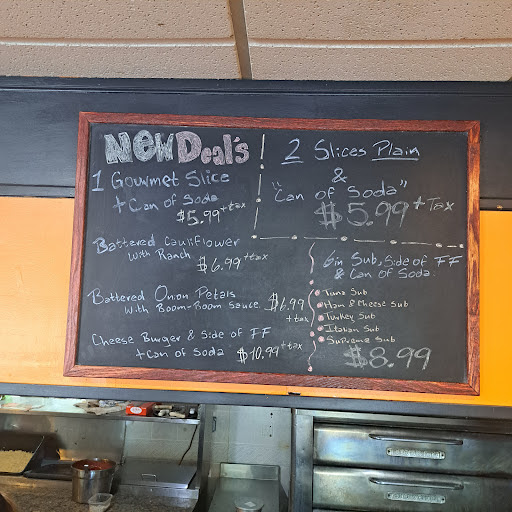 NEW Deal's
1 Gourmet Slice
+ Can of Soda
$5.99 + tax
Battered Cauliflower
with Ranch $6.99 + tax
Battered Onion Petals
with Boom-Boom Sauce $6.99
+ tax
Cheese Burger & Side of FF
+ Can of Soda $10.99 + tax
2 Slices Plain
&
"Can of Soda"
$5.99 + Tax
6in Sub, Side of FF
& Can of Soda.
Tuna Sub
Ham & Cheese Sub
Turkey Sub
Italian Sub
Supreme Sub
$8.99